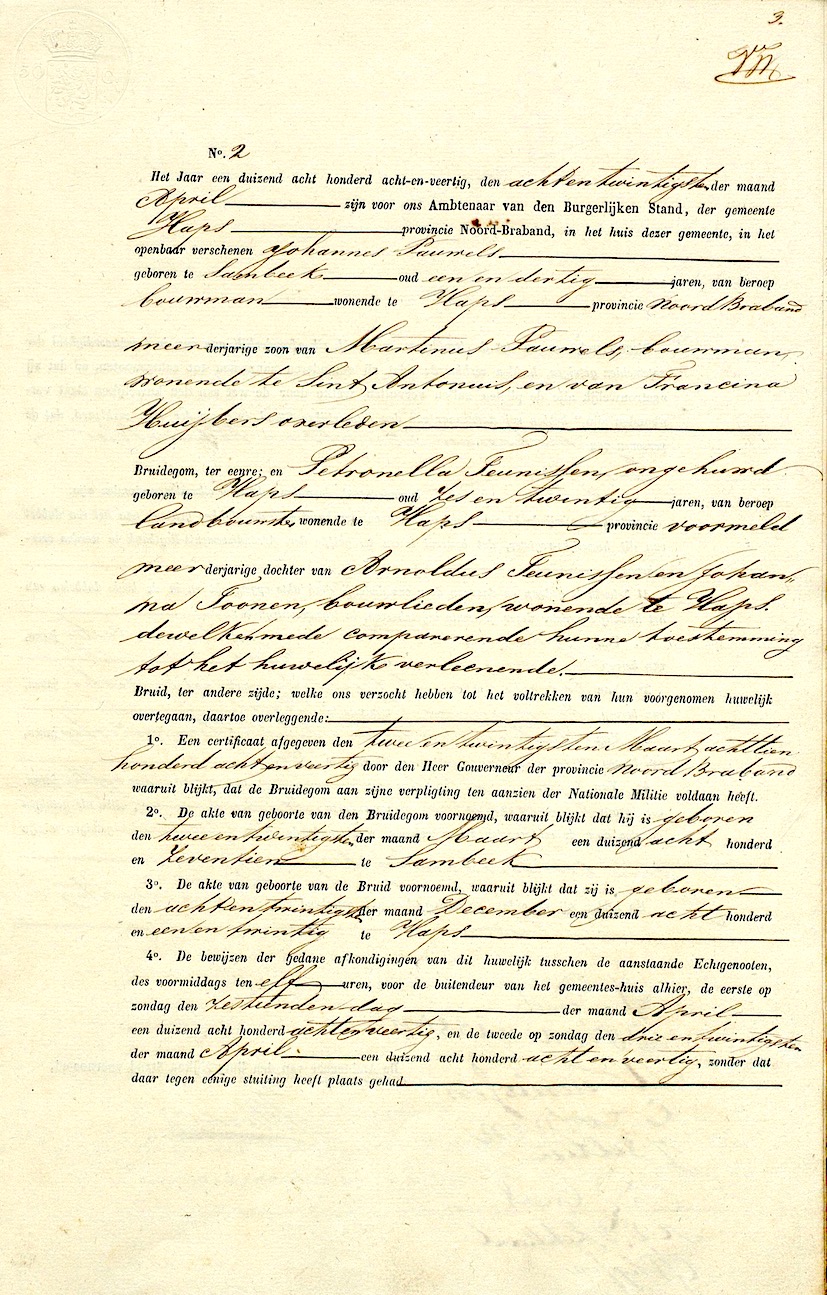 3.
No. 2
Het Jaar een duizend acht honderd acht-en-veertig, den acht en twintigsten der maand
April zijn voor ons Ambtenaar van den Burgerlijken Stand, der gemeente
Haps provincie Noord-Braband, in het huis dezer gemeente, in het
openbaar verschenen Johannes Pauwels
geboren te Sambeek oud een en dertig jaren, van beroep
bouwman wonende te Haps provincie Noord Braband
meerderjarige zoon van Martinus Pauwels, bouwman,
wonende te Sint Antonius, en van Francina
Huijbers overleden
Bruidegom, ter eenre; en Petronella Teunissen, ongehuwd
geboren te Haps oud zes en twintig jaren, van beroep
landbouwster, wonende te Haps provincie voormeld
meerderjarige dochter van Arnoldus Teunissen en Johan„
na Toonen, bouwlieden, wonende te Haps.
dewelke mede comparerende hunne toestemming
tot het huwelijk verleenende.
Bruid, ter andere zijde; welke ons verzocht hebben tot het voltrekken van hun voorgenomen huwelijk
overtegaan, daartoe overleggende:
1o. Een certificaat afgegeven den twee en twintigsten Maart achttien
honderd acht en veertig door den Heer Gouverneur der provincie Noord Braband
waaruit blijkt, dat de Bruidegom aan zijne verpligting ten aanzien der Nationale Militie voldaan heeft.
2o. De akte van geboorte van den Bruidegom voornoemd, waaruit blijkt dat hij is geboren
den twee en twintigsten der maand Maart een duizend acht honderd
en zeventien te Sambeek
3o. De akte van geboorte van de Bruid voornoemd, waaruit blijkt dat zij is geboren
den acht en twintigste der maand December een duizend acht honderd
en een en twintig te Haps
4o. De bewijzen der gedane afkondigingen van dit huwelijk tusschen de aanstaande Echtgenooten,
des voormiddags ten elf uren, voor de buitendeur van het gemeentes-huis alhier, de eerste op
zondag den zestienden dag der maand April
een duizend acht honderd acht en veertig, en de tweede op zondag den drie en twintigsten
der maand April een duizend acht honderd acht en veertig, zonder dat
daar tegen eenige stuiting heeft plaats gehad